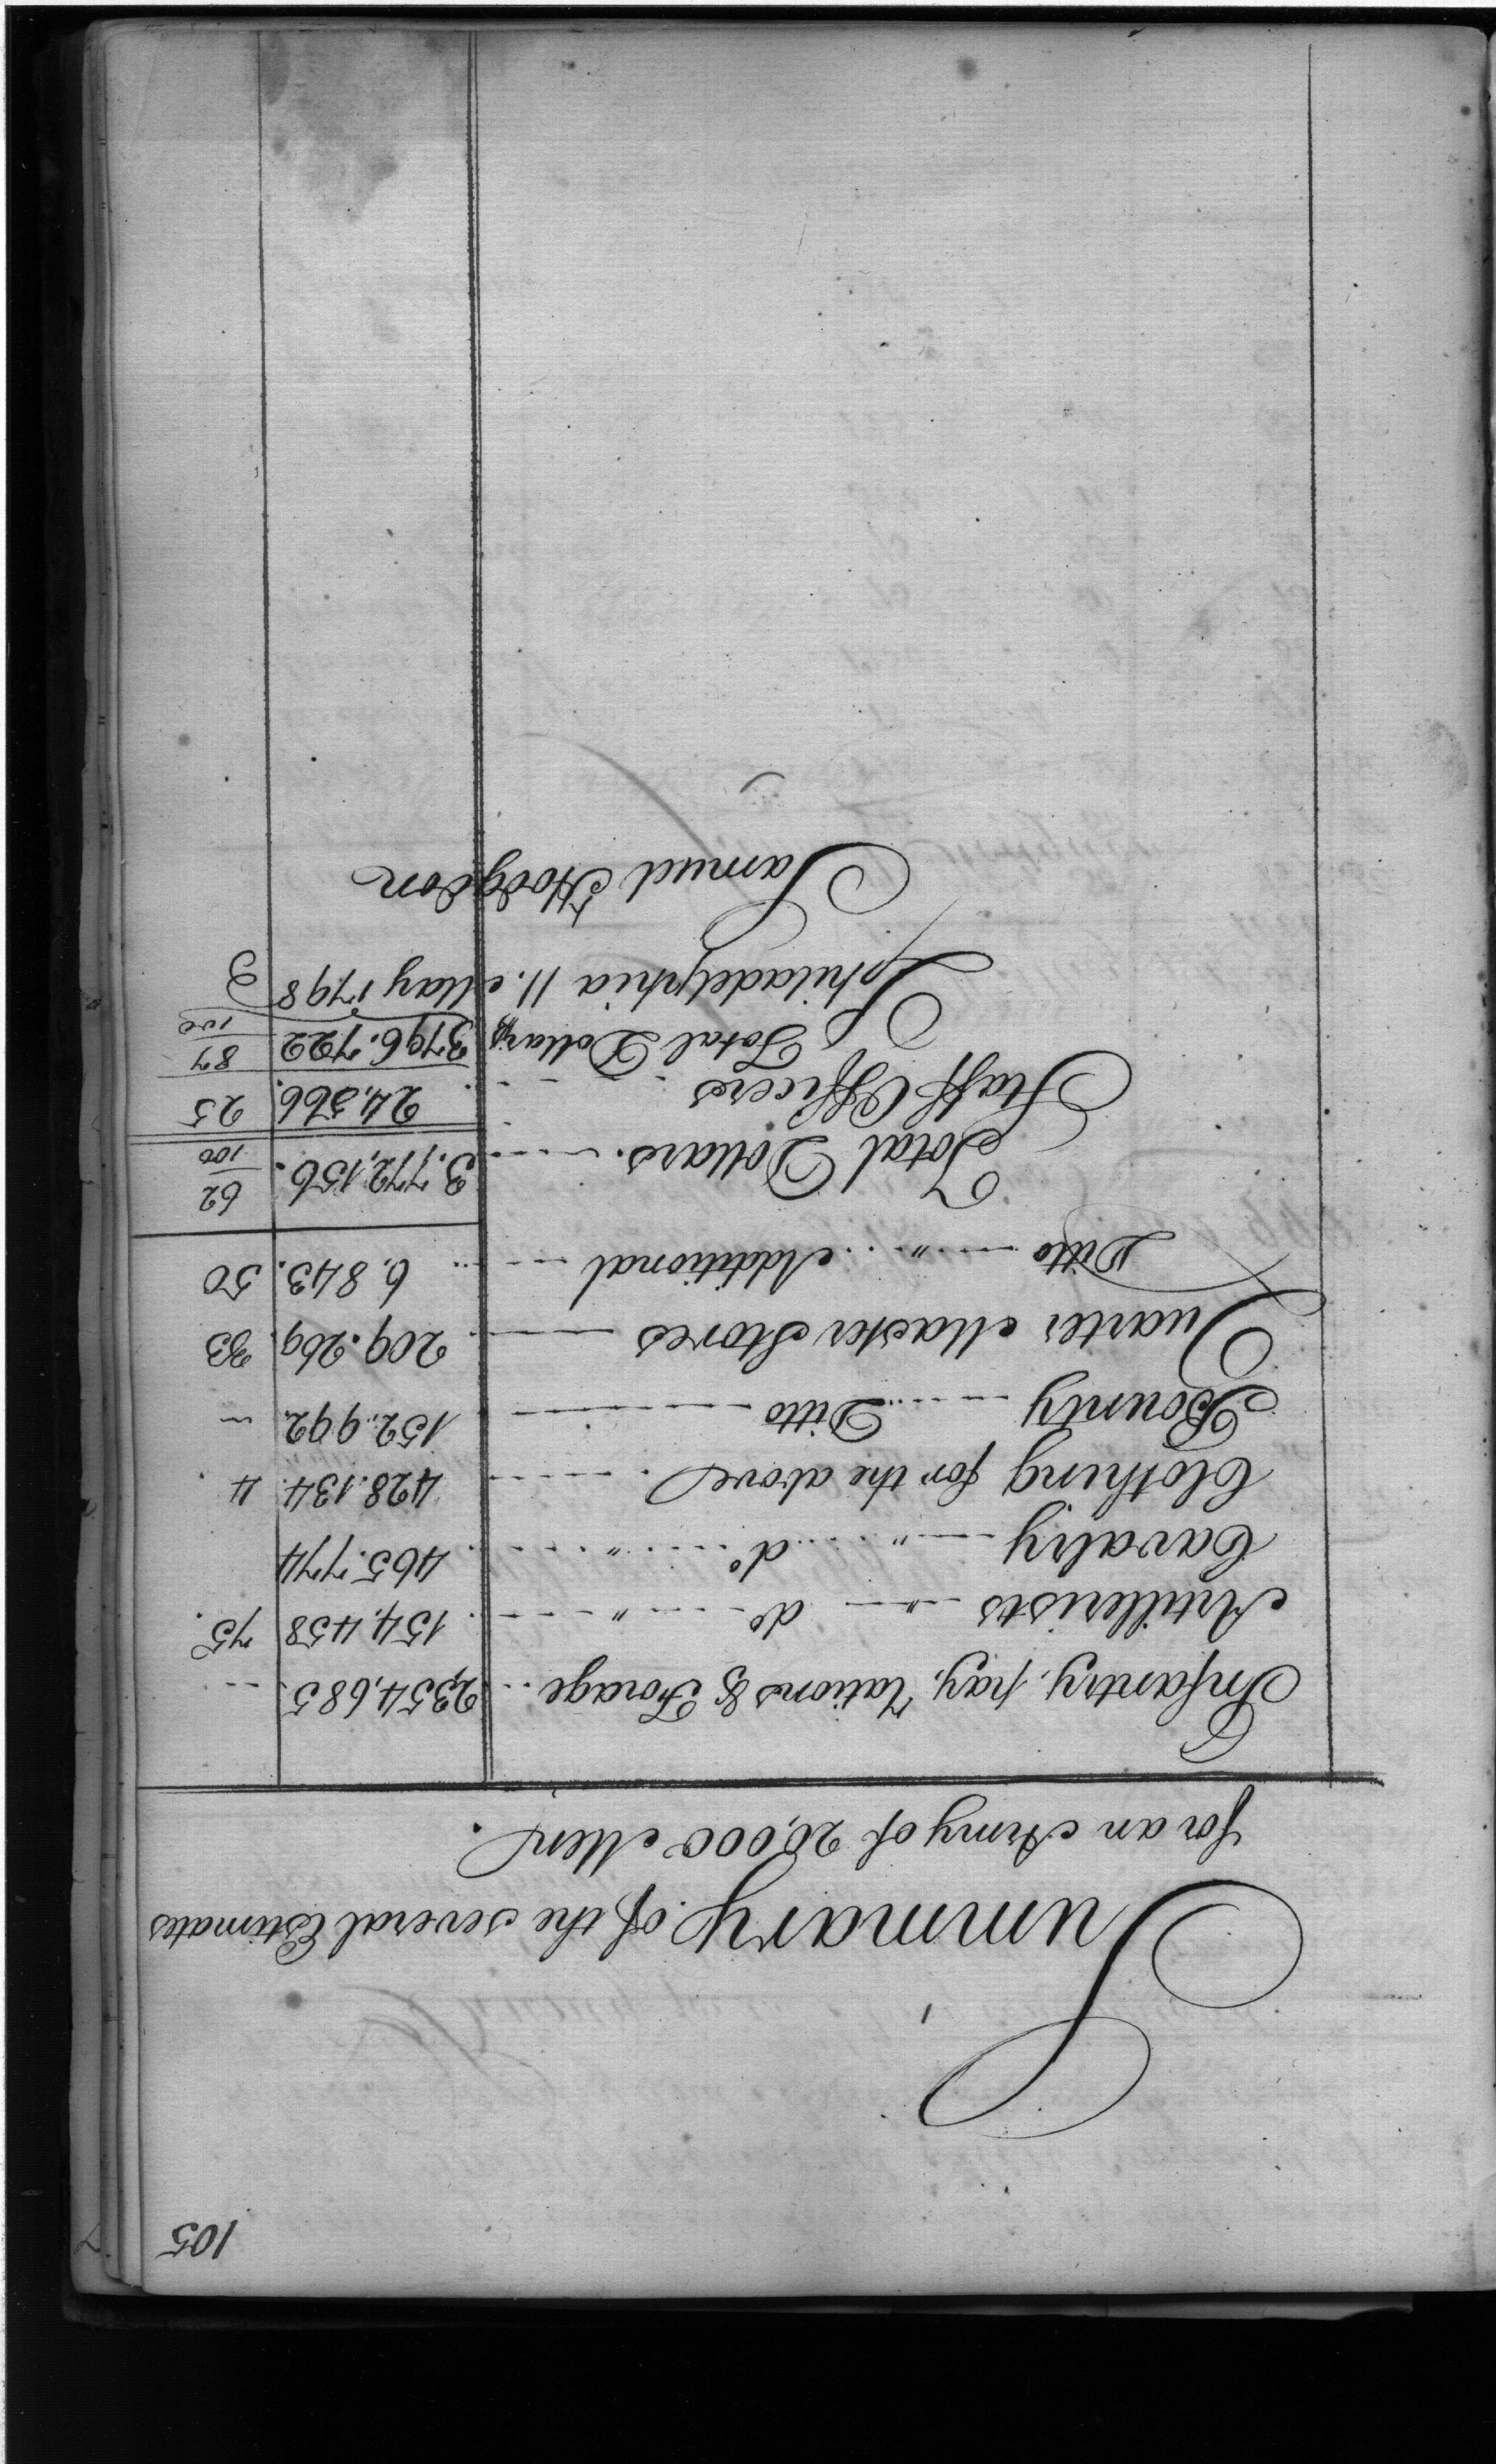 105
Summary of the several Estimates
for an Army of 20,000 Men.
Infantry, pay, rations & Forage .. 2,354,685. --
Artillerists --"-- do ---"--- 154,458 75.
Cavalry --"-- do ---"--- 465.774
Clothing for the above. ---- 428.134. 4.
Bounty ---- Ditto ---- 152.992. "
Quarter Master Stores ---- 209.269. 33
Ditto --"-- Additional --- 6.843. 50
Total Dollars. ---- 3.772,156. 62/100
Staff Officers ---- 24,566. 25
Total Dollars 3796.722 87/100
Philadelphia 11. May 1798
Samuel Hodgdon